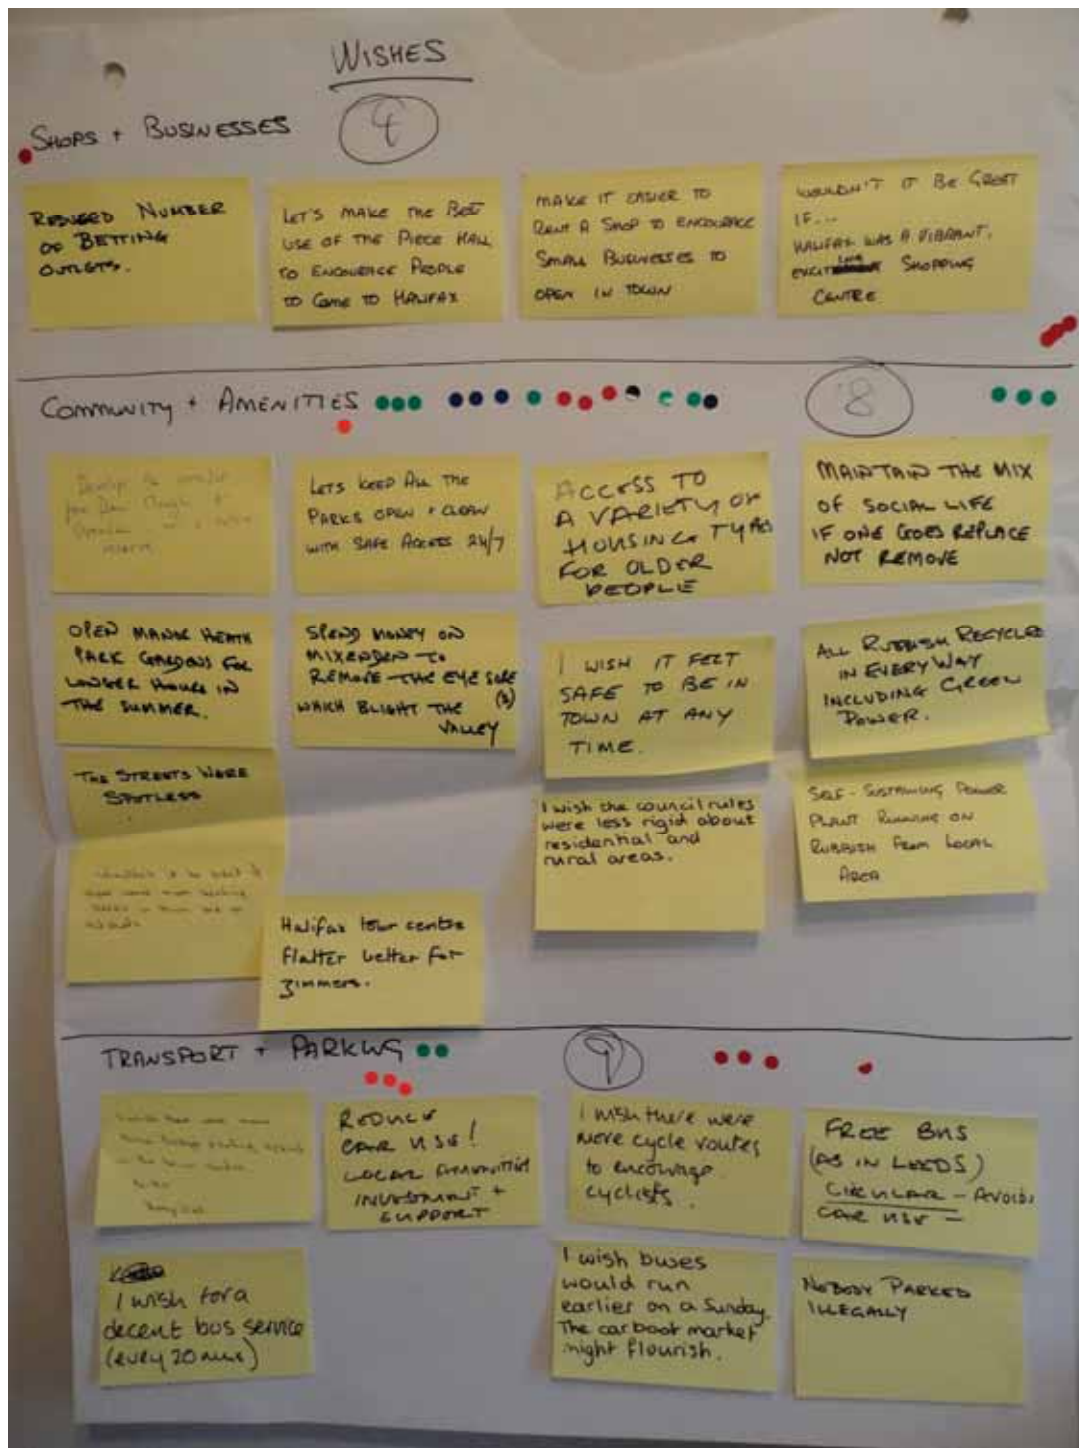 WISHES
SHOPS + BUSINESSES
REDUCED NUMBER
OF BETTING
OUTLETS.
LET'S MAKE THE BEST
USE OF THE PIECE HALL
TO ENCOURAGE PEOPLE
TO COME TO HALIFAX
MAKE IT EASIER TO
RENT A SHOP TO ENCOURAGE
SMALL BUSINESSES TO
OPEN IN TOWN
WOULDN'T IT BE GREAT
IF...
HALIFAX WAS A VIBRANT,
EXCITING SHOPPING
CENTRE
COMMUNITY + AMENITIES
8
Develop
LETS KEEP ALL THE
PARKS OPEN + CLEAN
WITH SAFE ACCESS 24/7
ACCESS TO
A VARIETY OF
HOUSING TYPES
FOR OLDER
PEOPLE
MAINTAIN THE MIX
OF SOCIAL LIFE
IF ONE GOES REPLACE
NOT REMOVE
OPEN MANOR HEATH
PARK GARDENS FOR
LONGER HOURS IN
THE SUMMER.
SPEND MONEY ON
MIXENDEN TO
REMOVE THE EYE SORE
(S)
WHICH BLIGHT THE
VALLEY
I WISH IT FELT
SAFE TO BE IN
TOWN AT ANY
TIME.
ALL RUBBISH RECYCLED
IN EVERY WAY
INCLUDING GREEN
POWER.
THE STREETS WERE
SPOTLESS
I wish the council rules
were less rigid about
residential and
rural areas.
SELF-SUSTAINING POWER
PLANT RUNNING ON
RUBBISH FROM LOCAL
AREA
Halifax town centre
flatter better for
zimmers.
TRANSPORT + PARKING
9
REDUCE
CAR USE!
LOCAL AMENITIES
INVESTMENT +
SUPPORT
I wish there were
more cycle routes
to encourage
cyclists.
FREE BUS
(AS IN LEEDS)
CIRCULAR - AVOIDS
CAR USE -
I wish for a
decent bus service
(every 20 mins)
I wish buses
would run
earlier on a Sunday.
The carboot market
might flourish.
NOBODY PARKED
ILLEGALLY